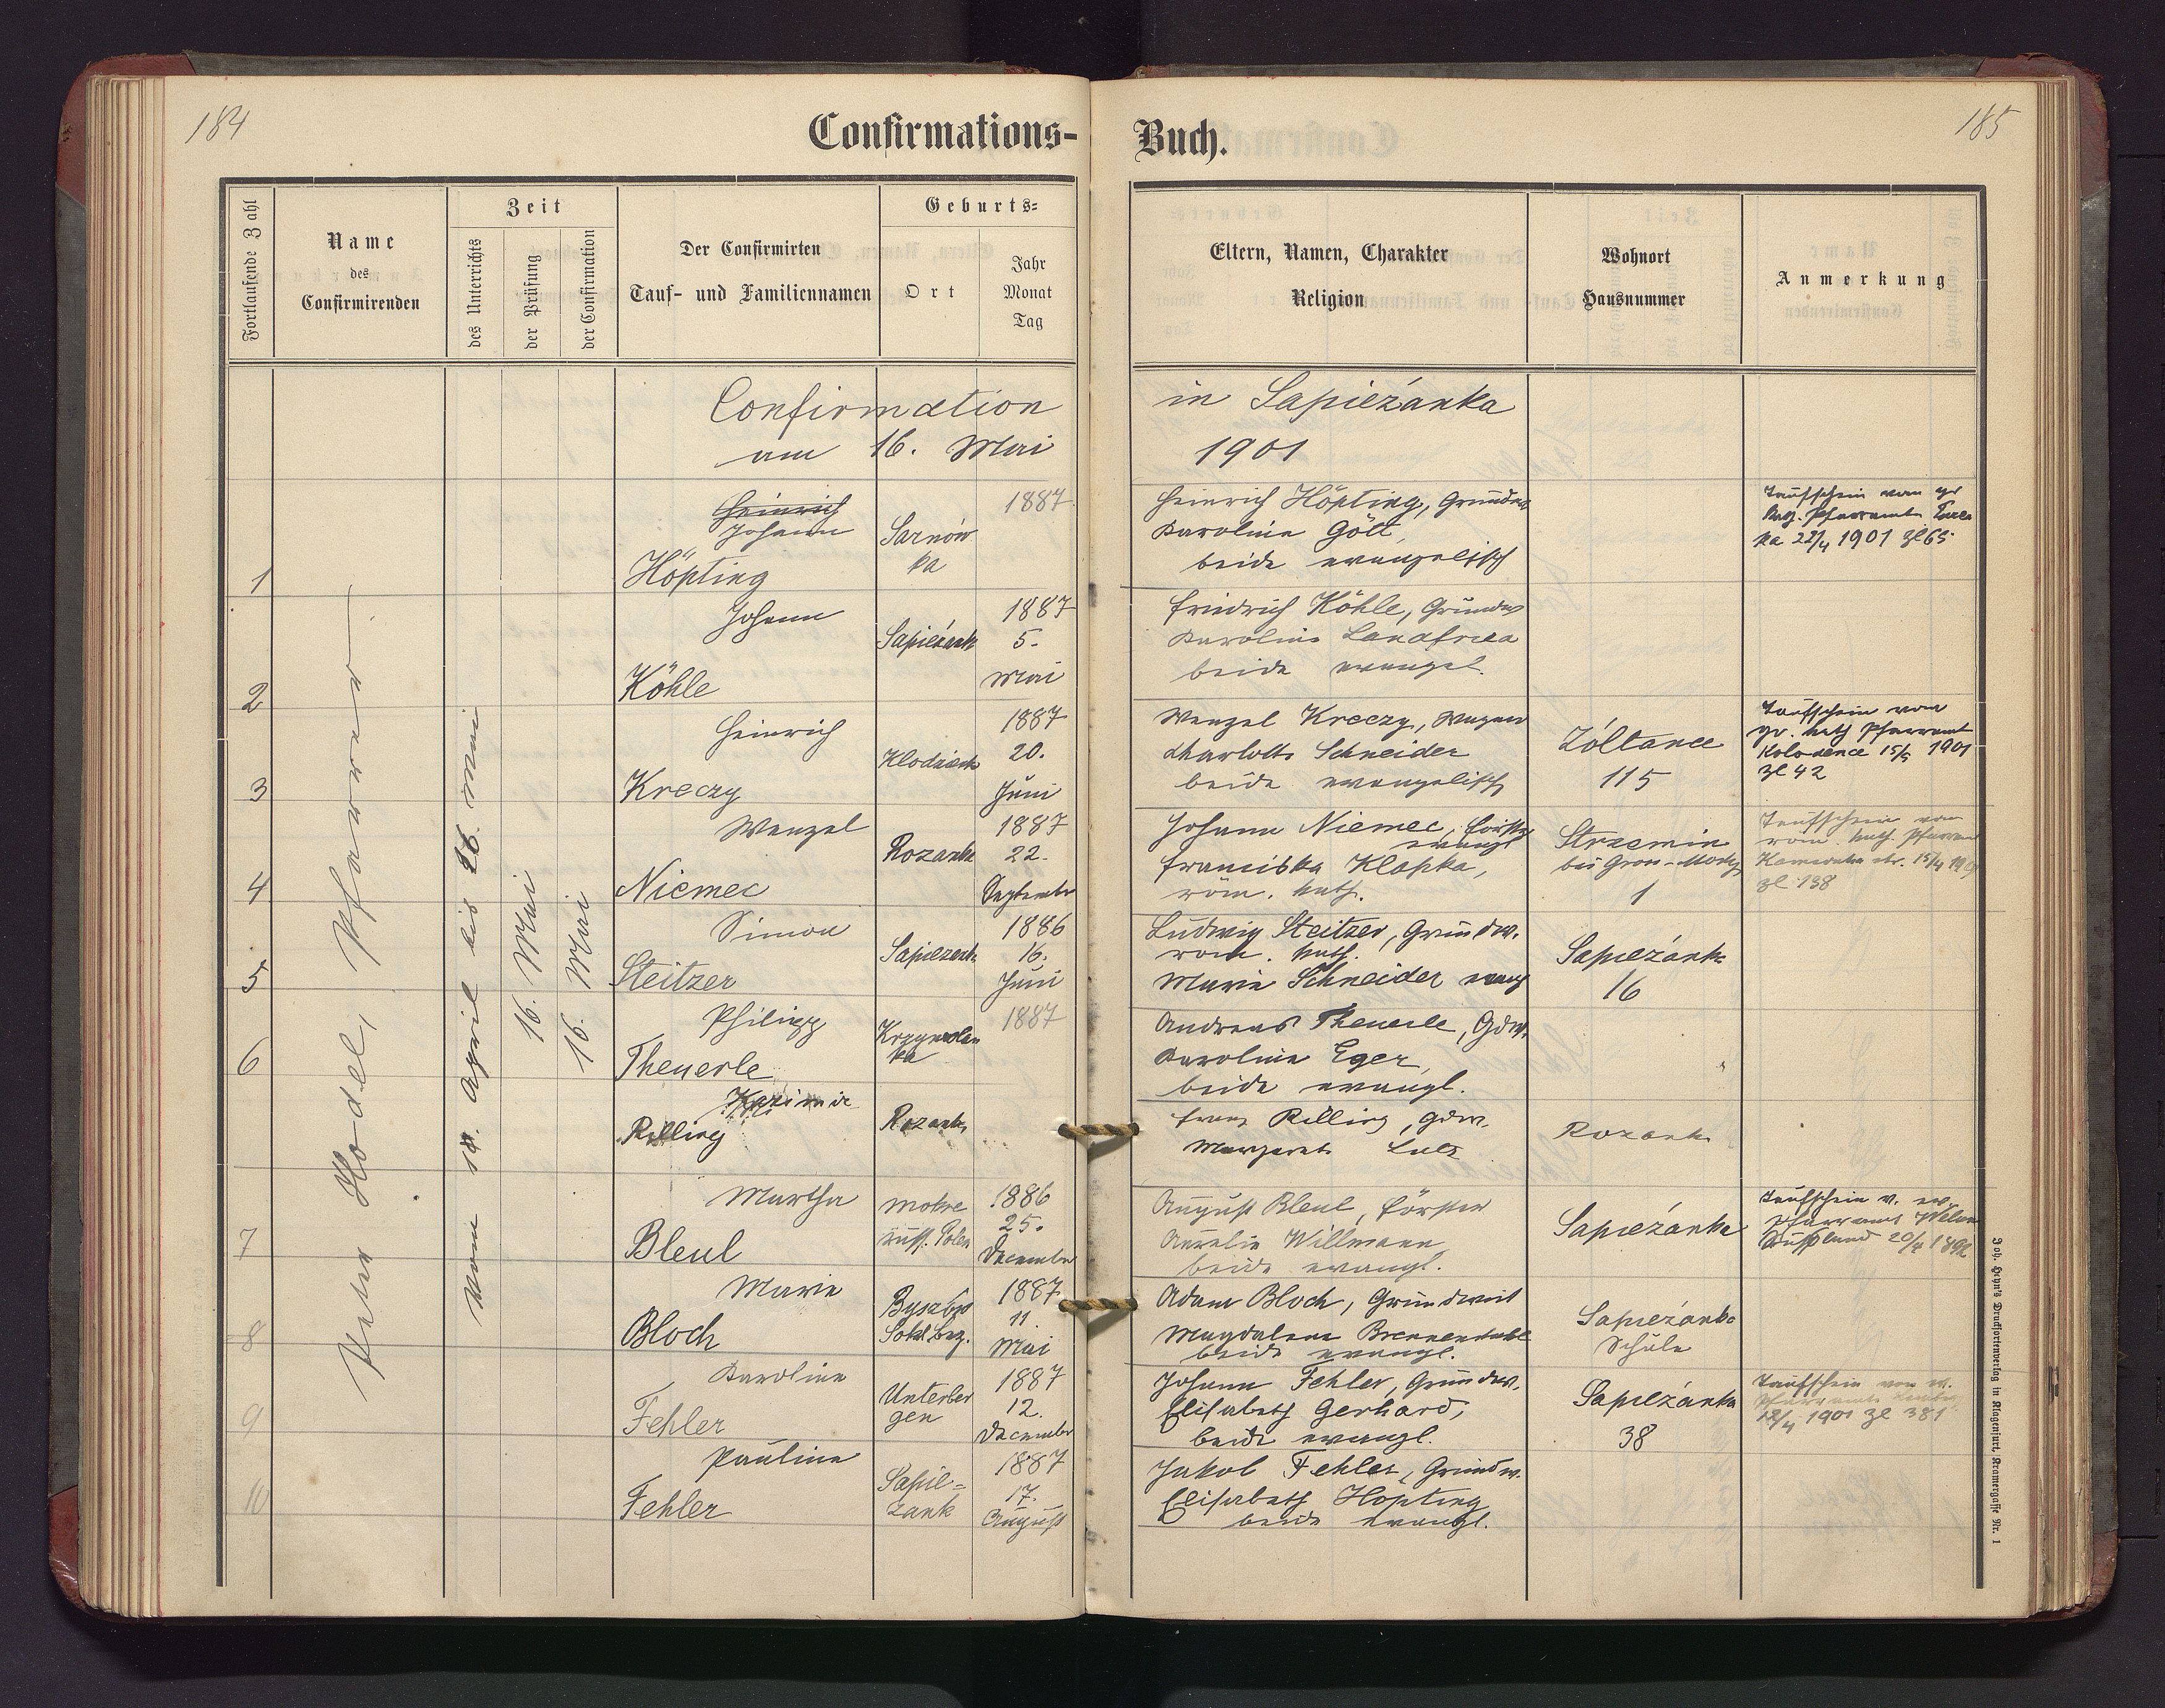 184
185
Confirmations-
Buch.
Fortlaufende Zahl
Name
des
Confirmirenden
Zeit
des Unterrichts
der Prüfung
der Confirmation
Der Confirmirten
Tauf- und Familiennamen
Geburts-
Ort
Jahr
Monat
Tag
Eltern, Namen, Charakter
Religion
Wohnort
Hausnummer
Anmerkung
Confirmation
in Sapieżanka
am 16. Mai
1901
Peter Hodel, Pfarrer
Vom 14. April bis 16. Mai
16. Mai
16. Mai
1
Heinrich
Johann
Höpting
Sarnów
ka
1887
Heinrich Höpting, Grundw
Karoline Gött
beide evangelisch
Taufschein vom gr
kath. Pfarramte
ka 22/4 1901 zl 65
2
Johann
Köhle
Sapieżank
1887
5.
Mai
Friedrich Köhle, Grundw
Karoline
beide evangel.
3
Heinrich
Kreczy
1887
20.
Juni
Wenzel Kreczy,
Charlotte Schneider
beide evangelisch
Żółtance
115
Taufschein vom
gr. kath Pfarramt
Kolodence 15/5 1901
zl 42
4
Wenzel
Niemec
Rozanka
1887
22.
September
Johann Niemec, Förster
evangl
Franciska Klapka,
röm. kath.
Strzemin
bei Gross-Mosty
1
Taufschein vom
röm. kath. Pfarramt
zl 138
5
Simon
Steitzer
Sapiezank
1886
16.
Juni
Ludwig Steitzer, Grundw.
röm. kath.
Marie Schneider evang
Sapieżanka
16
6
Philipp
Theuerle
ka
1887
Andreas Theuerle, Gdw.
Karoline Eger,
beide evangl.
Kazimir
Rilling
Rozanka
Franz Rilling, Gdw.
Margareta Lutz
Rozanka
7
Martha
Bleul
Mokre
russ. Polen
1886
25.
December
August Bleul, Förster
Aurelie Willmann
beide evangl.
Sapieżanka
Taufschein v. ev.
Pfarramt
Russland 20/4 1892
8
Marie
Bloch
Byszów
Sokl. Bez.
1887
11.
Mai
Adam Bloch, Grundwirt
Magdalena Brennenstuhl
beide evangl.
Sapieżanka
Schule
9
Karoline
Fehler
Unterber
gen
1887
12.
December
Johann Fehler, Grundw.
Elisabeth Gerhard,
beide evangl.
Sapieżanka
38
Taufschein vom ev.
Pfarramte
12/4 1901 zl 381
10
Pauline
Fehler
Sapie-
żank
1887
17.
August
Jakob Fehler, Grundw.
Elisabeth Höpting
beide evangl.
Joh. Heyn's Drucksortenverlag in Klagenfurt, Kramergasse Nr. 1